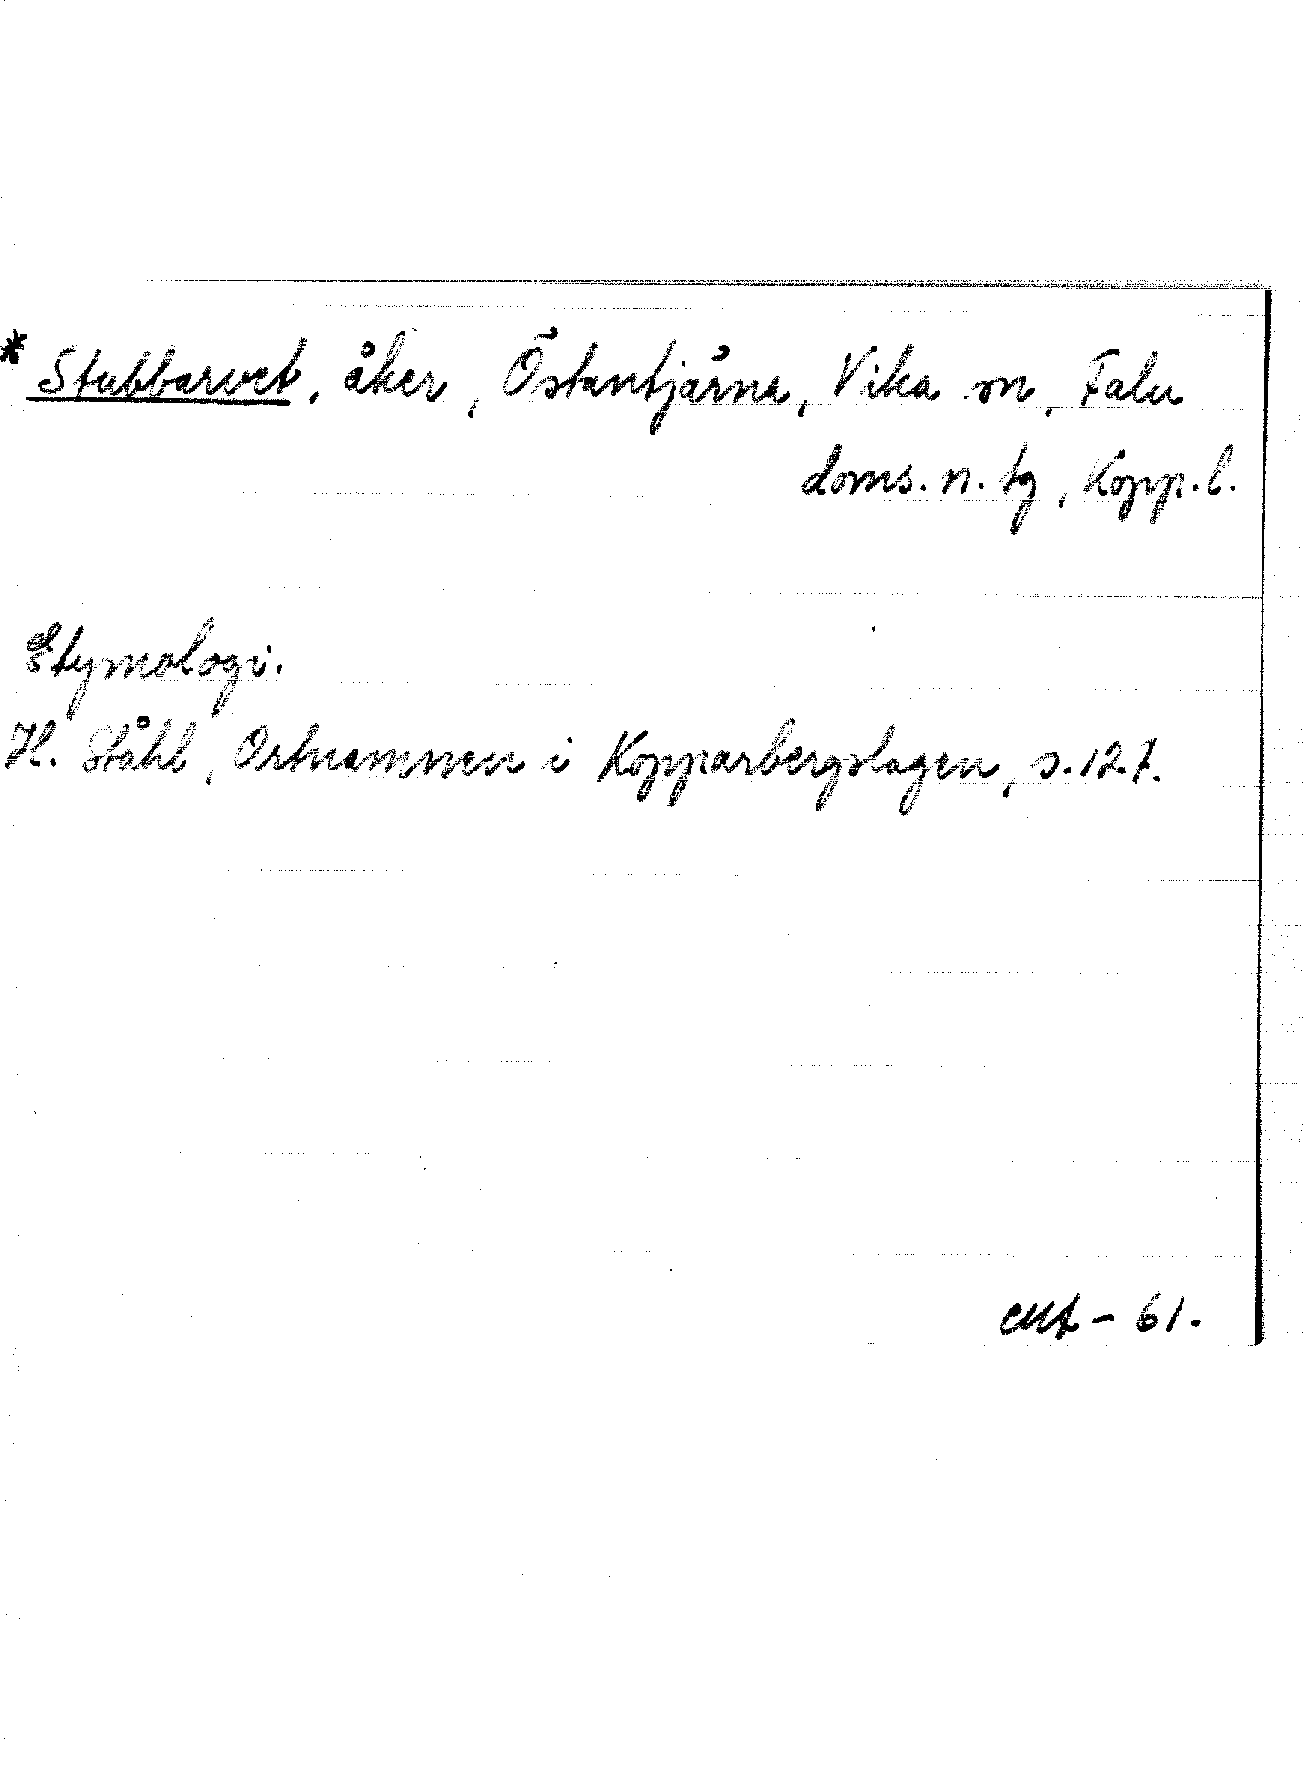 * Stubbarvet, åker, Östantjärna, Vika sn, Falu
doms. n. tg, Kopp. l.
Etymologi.
H. Ståhl, Ortnamnen i Kopparbergslagen, s. 127.
- 61.